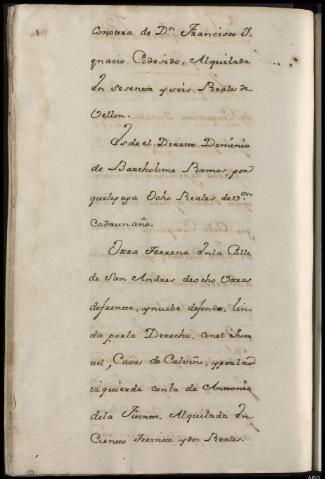 Conotra de Dn. Francisco Y-
gnacio Codesido, Alquilada
En Sesenta y seis Reales de
Vellon.
Es de el Directo Dominio
de Bartholome Ramos, por
que le paga Ocho Reales de Von
Cada un año.
Otra Terrena En la Calle
de San Andres de ocho Varas
de frente, y nuebe de fondo, lin-
da por la Derecha, con el
Casas de Calviño, y por la
izquierda con la de Antonio
dela Fuente, Alquilada En
Ciento Treinta y dos Reales.